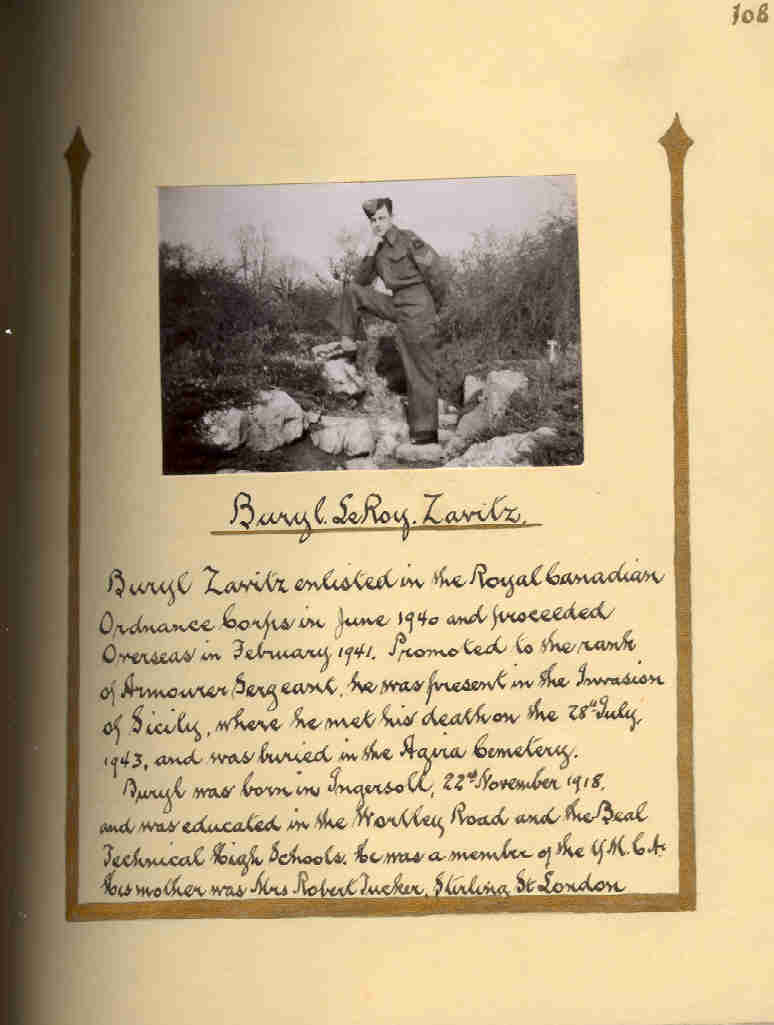 108
Buryl. LeRoy. Zavitz.
Buryl Zavitz enlisted in the Royal Canadian
Ordnance Corps in June 1940 and proceeded
Overseas in February 1941. Promoted to the rank
of Armourer Sergeant, he was present in the Invasion
of Sicily, where he met his death on the 28th July,
1943, and was buried in the Agira Cemetery.
Buryl was born in Ingersoll, 22nd November 1918,
and was educated in the Wortley Road and the Beal
Technical High Schools. He was a member of the Y.M.C.A.
His mother was Mrs Robert Tucker, Stirling St London